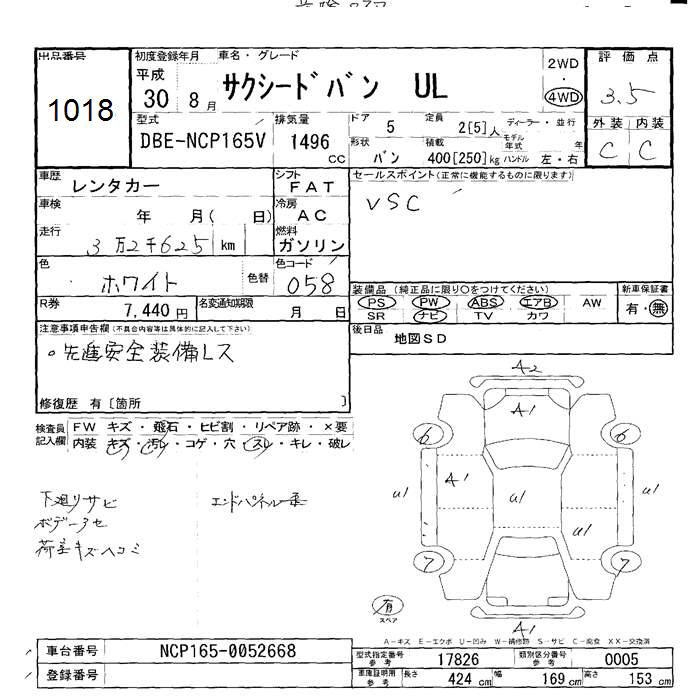 出品番号 初度登録年月 車名・グレード
1018
平成 30 8月 サクシードバン UL
2WD ・ 4WD
評価点 3.5
外装 内装
C C
型式 排気量 ドア 5 定員 2[5]人 ディーラー・並行
DBE-NCP165V 1496 cc
形状 バン 積載 400[250]kg モデル年式 年 ハンドル 左・右
車歴 レンタカー シフト FAT
セールスポイント(正常に機能するものに限ります)
VSC
車検 年 月( 日) 冷房 AC
走行 3万2千625 km 燃料 ガソリン
色 ホワイト 色替 色コード 058
装備品 (純正品に限り○をつけてください) 新車保証書
PS PW ABS エアB AW 有・無
SR ナビ TV カワ
R券 7,440円 名変通知期限 月 日
後日品 地図SD
注意事項申告欄(不具合内容等は具体的に記入して下さい)
・先進安全装備レス
修復歴 有[箇所 ]
検査員記入欄 FW キズ・飛石・ヒビ割・リペア跡・×要
内装 キズ・汚レ・コゲ・穴・スレ・キレ・破レ
下廻りサビ エンドパネル
荷室キズヘコミ
A2
A1
6 6
A1
U1 U1 U1
U1
7 7
有
スペア
A1
A-キズ E-エクボ U-凹み W-補修跡 S-サビ C-腐食 XX-交換済
車台番号 NCP165-0052668
登録番号
型式指定番号 参考 17826 類別区分番号 参考 0005
車庫証明用 参考 長さ 424 cm 幅 169 cm 高さ 153 cm